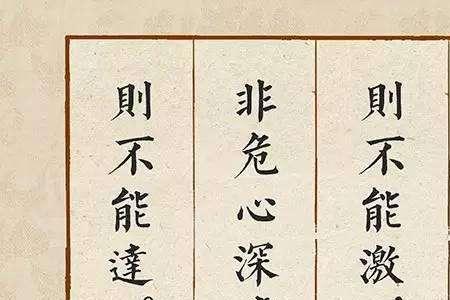 則不能激
非危心深
則不能達。